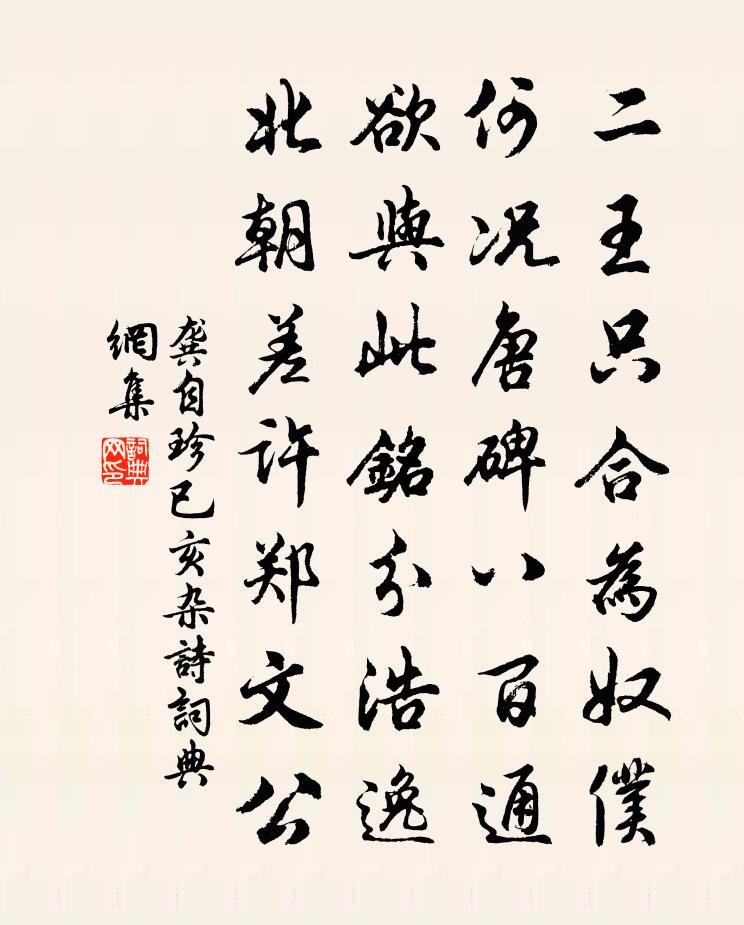 二王只合為奴僕
何况唐碑八百通
欲與此銘分浩逸
北朝差许郑文公
龚自珍已亥杂詩詞典
網集
詞典網印